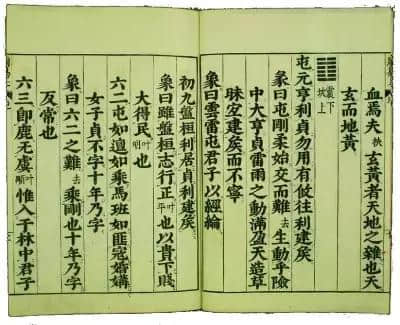 血焉夫 扶 玄黃者天地之雜也天
玄而地黃
震下
坎上
屯元亨利貞勿用有攸往利建矦
彖曰屯剛柔始交而難 去 生動乎險
中大亨貞雷雨之動滿盈天造草
昧宜建矦而不寧
象曰雲雷屯君子以經綸
初九盤桓利居貞利建矦
象曰雖盤桓志行正 叶平 也以貴下賤
大得民 叶明 也
六二屯如邅如乘馬班如匪寇婚媾
女子貞不字十年乃字
象曰六二之難 去 乘剛也十年乃字
反常也
六三卽鹿无虞 叶 惟入于林中君子